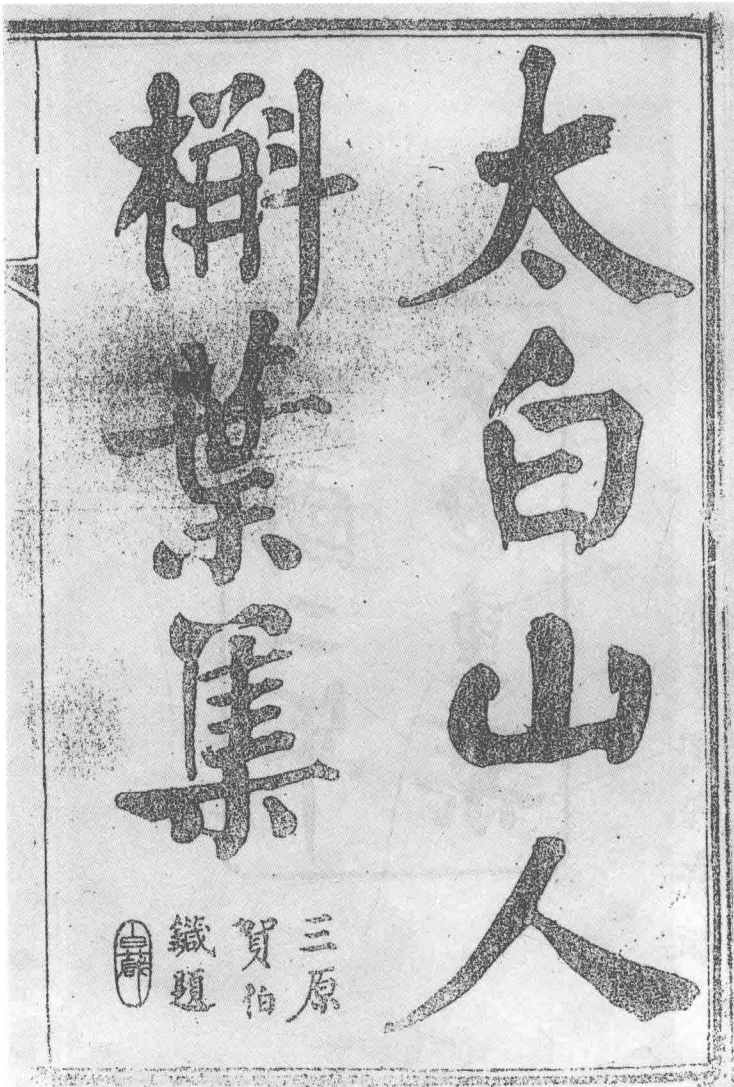 太白山人
槲葉集
三原
賀伯
鍼題